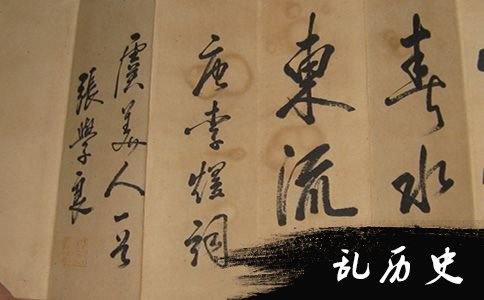 春水
東流
唐李煜詞
虞美人一首
張學良
乱历史